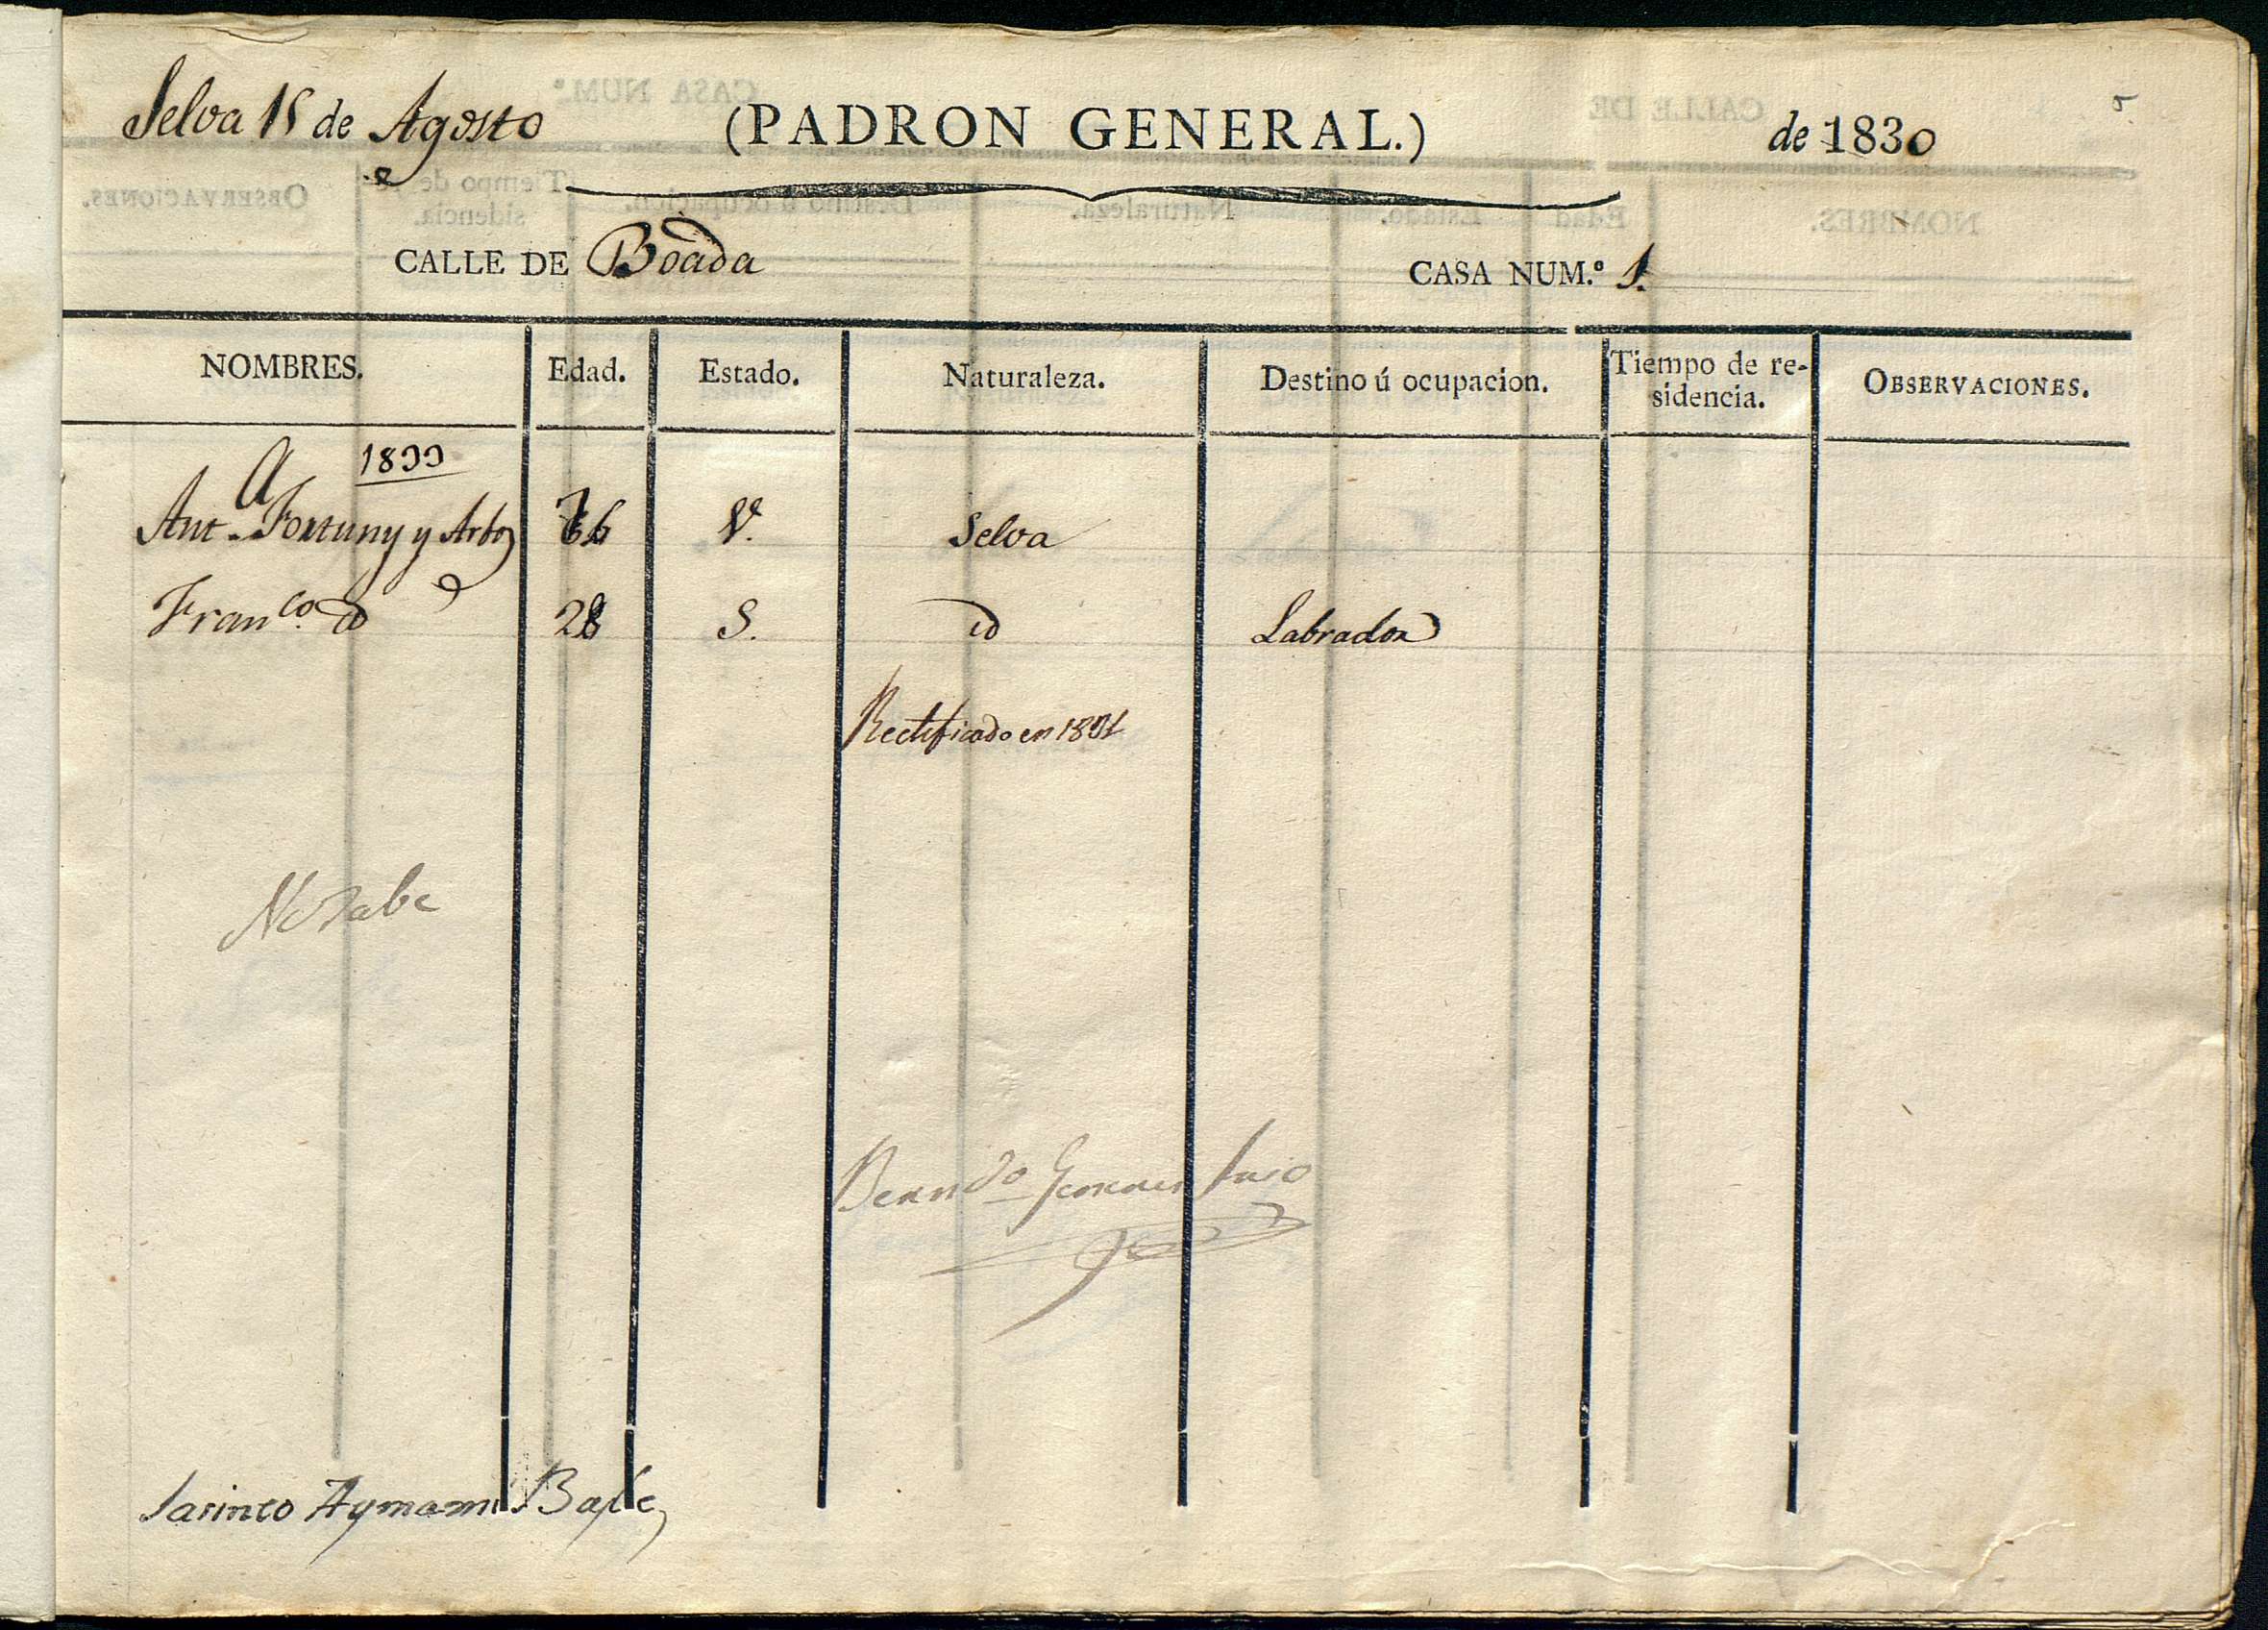 Selva 15 de Agosto (PADRON GENERAL.) de 1830
CALLE DE Boada CASA NUM.º 1.
NOMBRES. Edad. Estado. Naturaleza. Destino ú ocupacion. Tiempo de re-sidencia. OBSERVACIONES.
1833
Ant. Fortuny y Arbos 76 V. Selva
Franco. id 28 S. id Labrador
Rectificado en 1831
No sabe
Jasinto Aymami Bayle